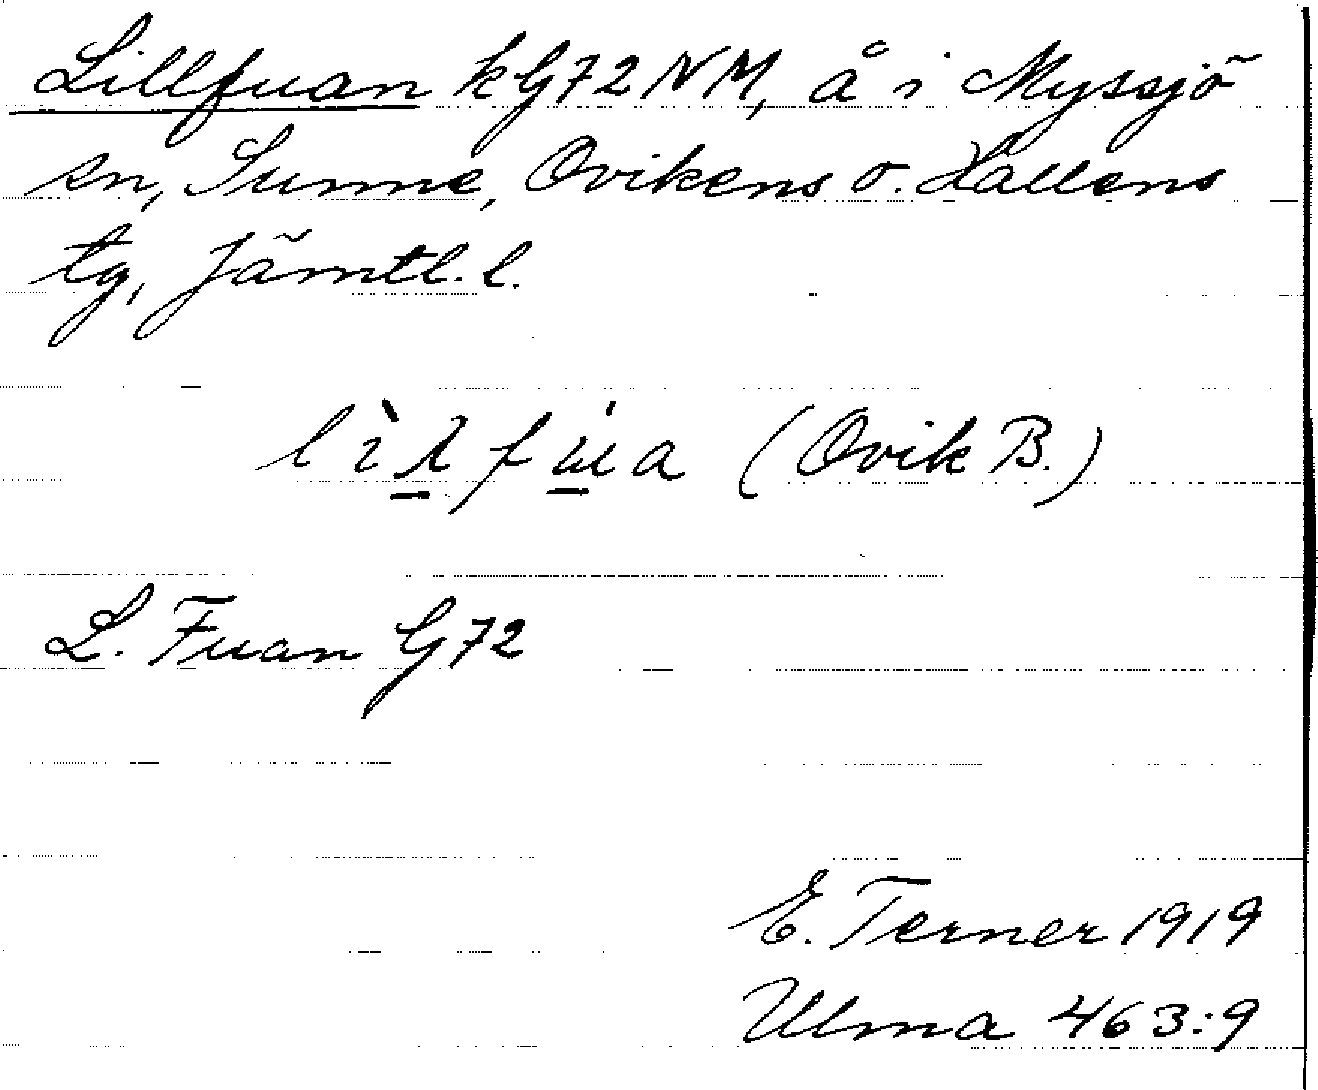 Lillfuan kG72NM, å i Myssjö
sn, Sunne, Ovikens o. Hallens
tg, Jämtl. l.
(Ovik B.)
L. Fuan G72
E. Terner 1919
Ulma 463:9